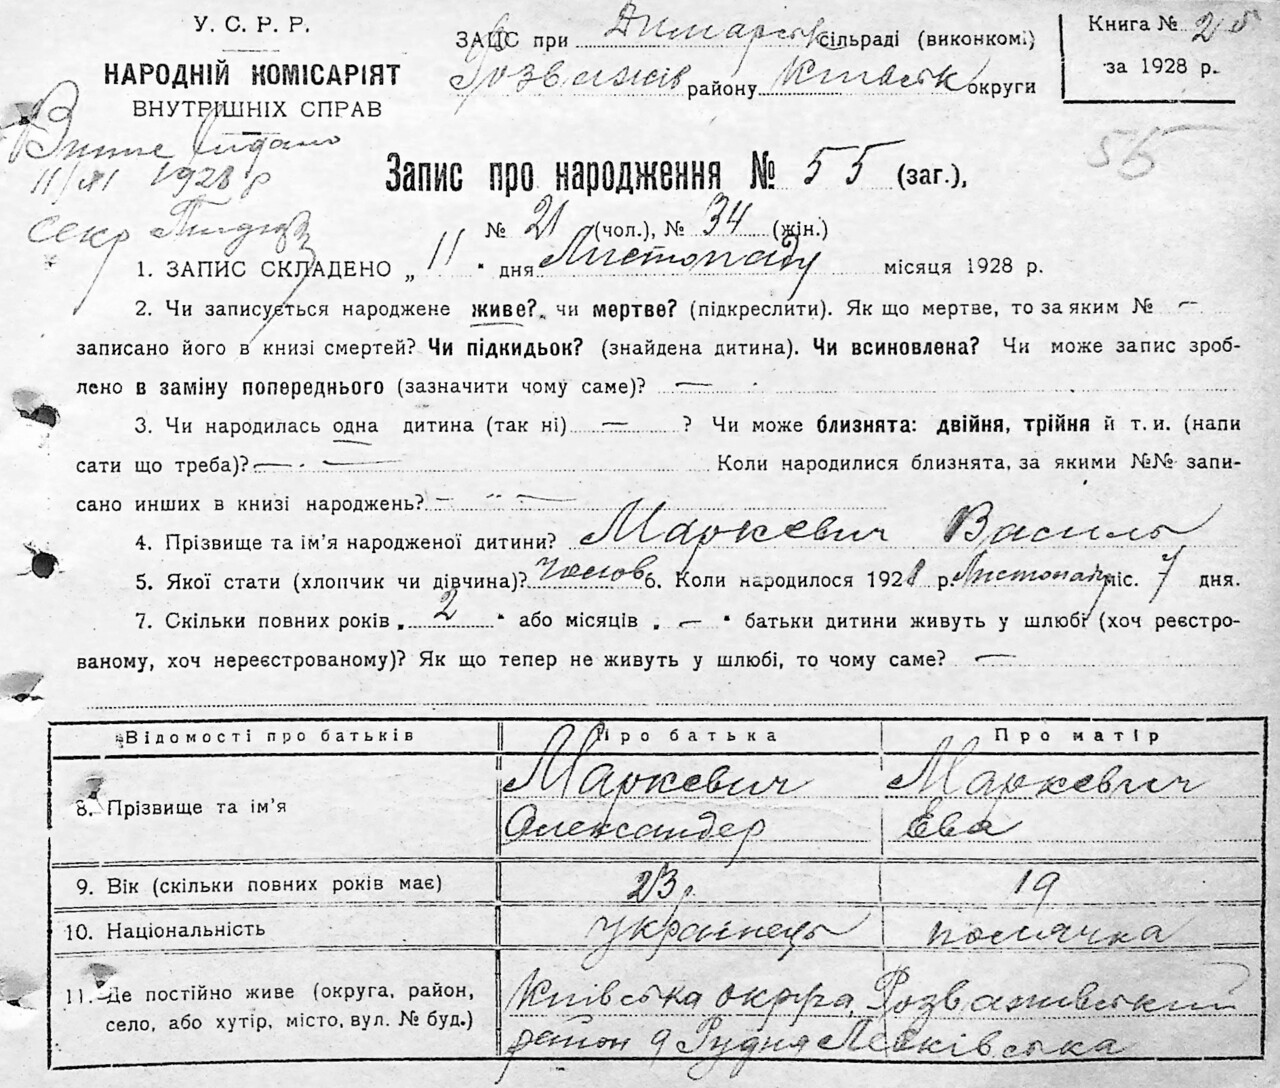 У. С. Р. Р.
НАРОДНІЙ КОМІСАРІЯТ
ВНУТРІШНІХ СПРАВ
ЗАЦС при Димарськ сільраді (виконкомі)
Розважів району Київськ округи
Книга № 25
за 1928 р.
Витяг видано
11/XI 1928 р
секр
55
Запис про народження № 55 (заг.),
№ 21 (чол.), № 34 (жін.)
1. ЗАПИС СКЛАДЕНО „ 11 " дня Листопаду місяця 1928 р.
2. Чи записується народжене живе? чи мертве? (підкреслити). Як що мертве, то за яким № —
записано його в книзі смертей? Чи підкидьок? (знайдена дитина). Чи всиновлена? Чи може запис зроб-
лено в заміну попереднього (зазначити чому саме)? —
3. Чи народилась одна дитина (так ні) — ? Чи може близнята: двійня, трійня й т. и. (напи
сати що треба)? — — Коли народилися близнята, за якими №№ запи-
сано инших в книзі народжень? — —
4. Прізвище та ім'я народженої дитини? Маркевич Василь
5. Якої стати (хлопчик чи дівчина)? чолов 6. Коли народилося 1928 р. Листопаду міс. 7 дня.
7. Скільки повних років „ 2 " або місяців „ — " батьки дитини живуть у шлюбі (хоч реєстро-
ваному, хоч нереєстрованому)? Як що тепер не живуть у шлюбі, то чому саме? —
Відомості про батьків Про батька Про матір
8. Прізвище та ім'я Маркевич Олександер Маркевич Ева
9. Вік (скільки повних років має) 23 р. 19
10. Національність українець полячка
11. Де постійно живе (округа, район, Київська округа, Розважівський
село, або хутір, місто, вул. № буд.) район Рудня Леськівська